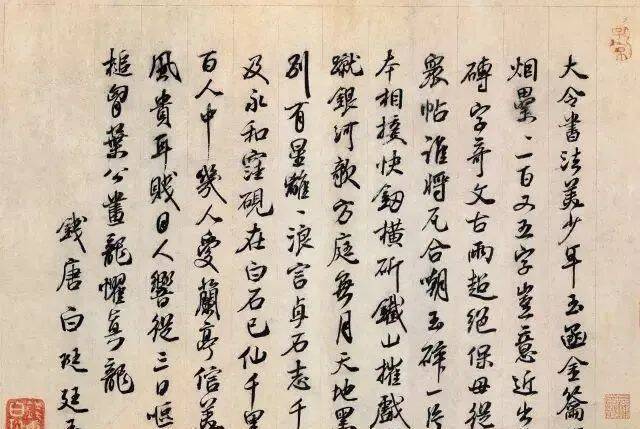 大令書法美少年玉函金籥
烟壘、一百又五字豈意近出
磚字奇文古兩超絕保母從
衆帖誰將瓦合嘲玉碎一片
本相接快劒橫斫鐵山摧戲
蹴銀河欹方庭無月天地黑
列百星離、浪言貞石志千
及永和窪硯在白石已仙千里
百人中幾人愛蘭亭信美
風貴耳賤目人響從三日
槌曾葉公畫龍懼真龍
錢唐白珽廷玉